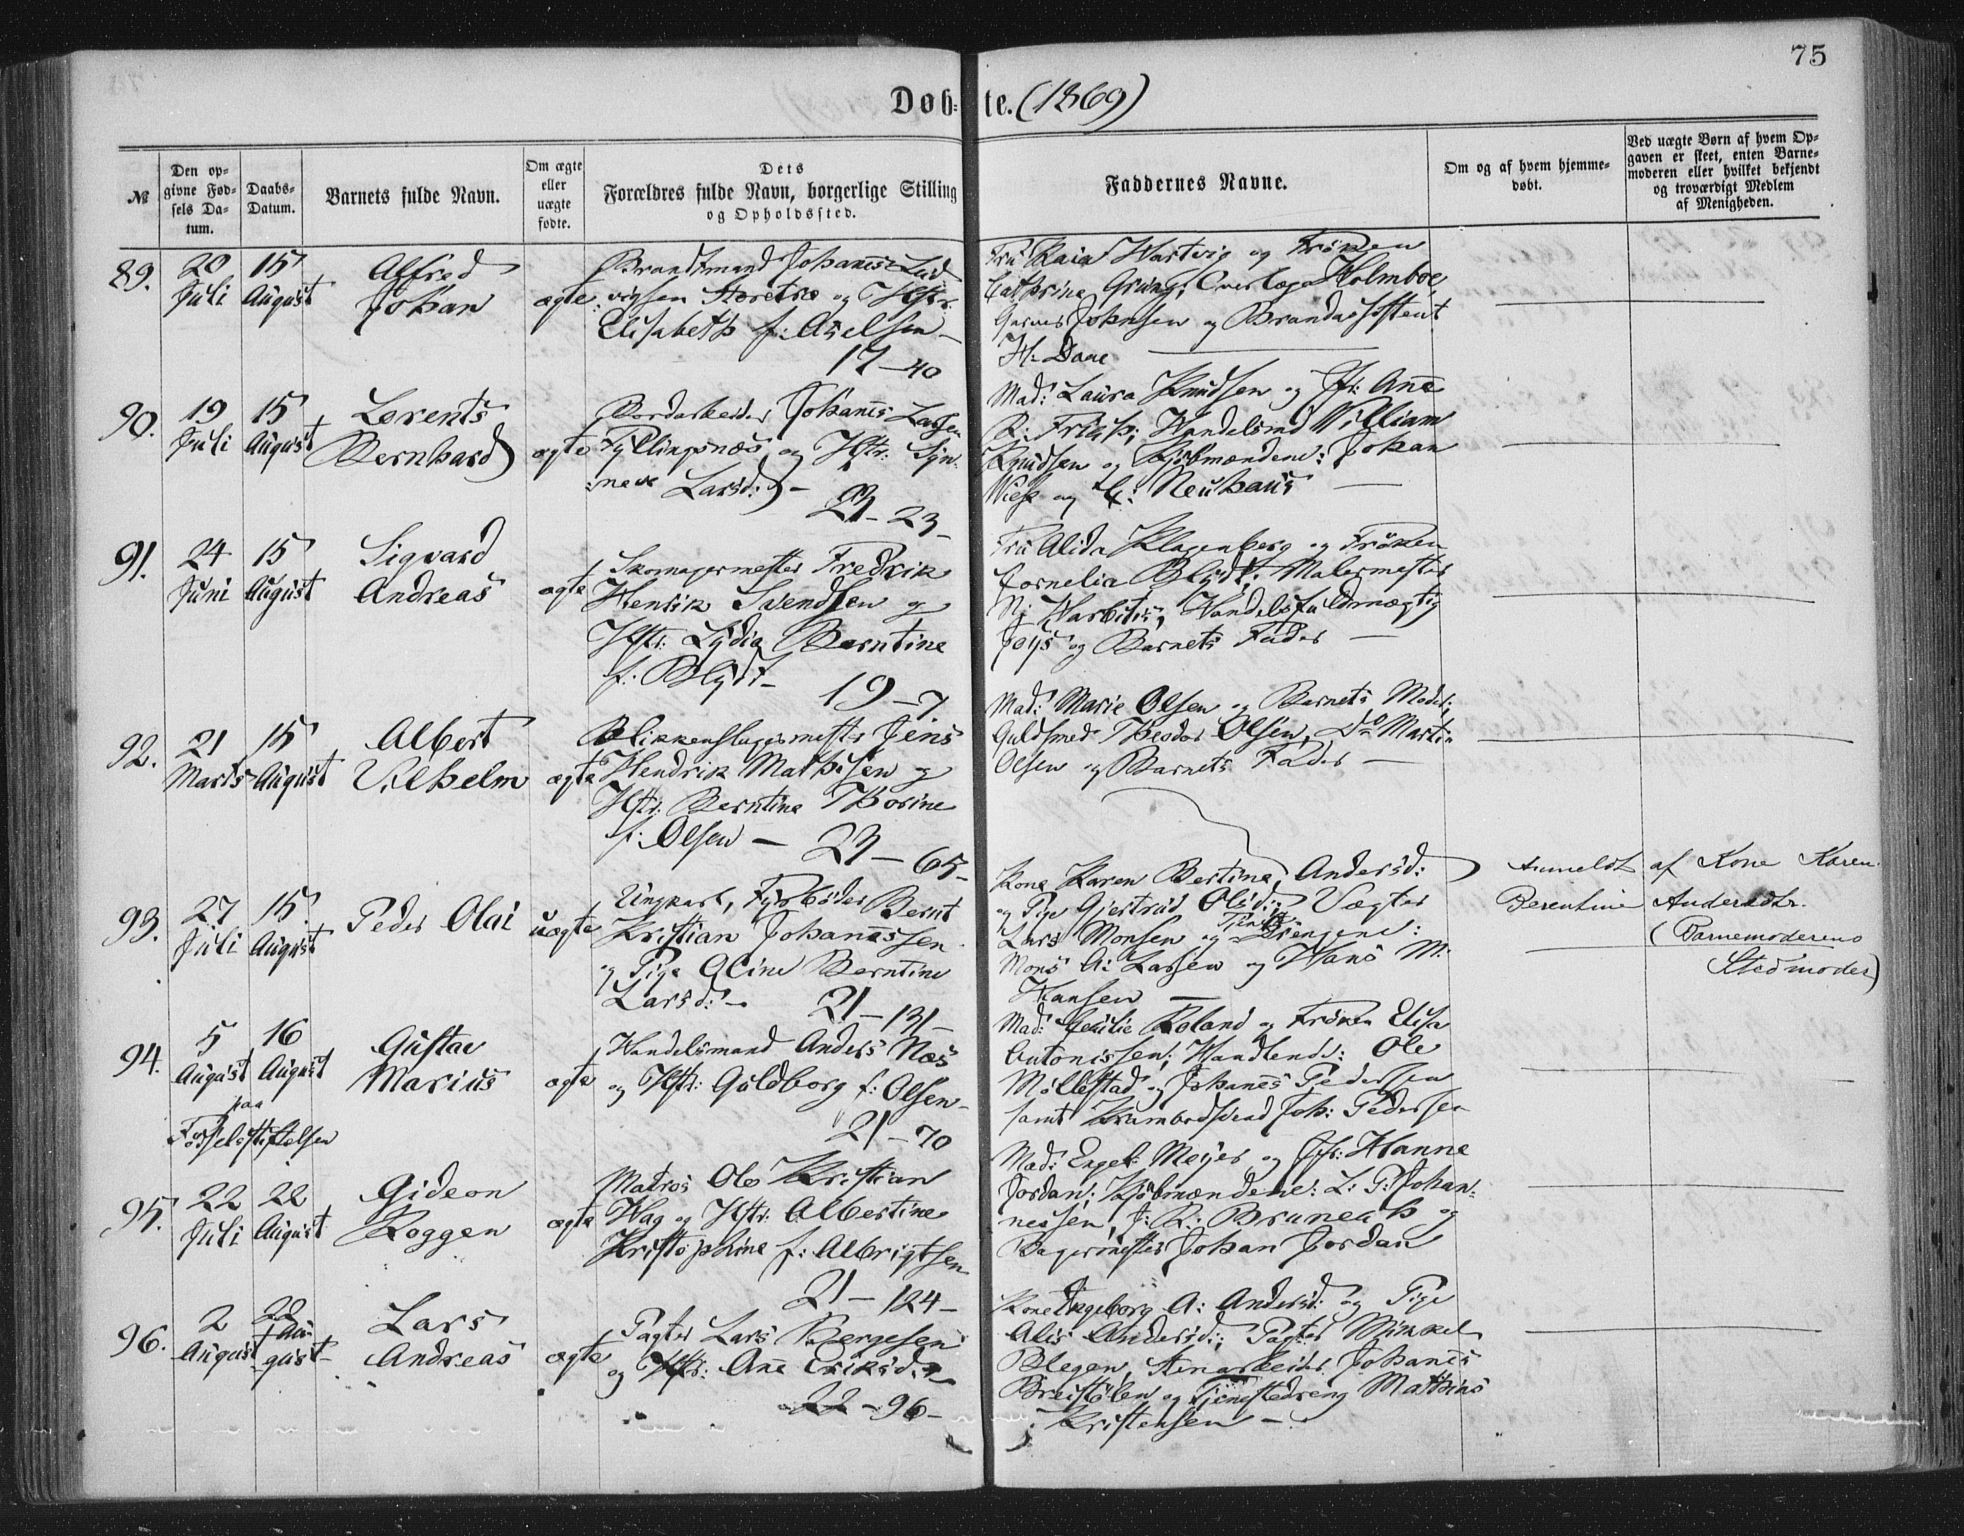 75
Døb-te. (1869)
№
Den op-
givne Fød-
sels Da-
tum.
Daabs-
Datum.
Barnets fulde Navn.
Om ægte
eller
uægte
fødte.
Dets
Forældres fulde Navn, borgerlige Stilling
og Opholdssted.
Faddernes Navne.
Om og af hvem hjemme-
døbt.
Ved uægte Børn af hvem Op-
gaven er skeet, enten Barne-
moderen eller hvilket bekjendt
og troværdigt Medlem
af Menigheden.
89.
20
Juli
15
August
Alfred
Johan
ægte
Brandtmand Johanes Lud-
vigsen og Hstr:
Elisabeth f: Axelsen
17-40
Fru Kaia Hartvig og Frøken
Cathrina Grüng, Overlæge Holmboe
Garver Johnsen og Brandassistent
H. Dane
90.
19
Juli
15
August
Lorents
Bernhard
ægte
Bordarbeider Johanes Larsen
Fyllingsnæs og Hstr: Syn-
neve Larsd:
23-23
Mad: Laura Knudsen og Jfr: Ane
B: Friis; Handelsmd William
Knudsen og Kjøbmændene: Johan
Wiese og C: Neuhaus
91.
24
Juni
15
August
Sigvard
Andreas
ægte
Skomagermester Fredrik
Henrik Svendsen og
Hstr: Lydia Berntine
f: Blydt
19-7.
Fru Alida Klagenberg og Frøken
Cornelia Blydt; Malermester
N: Harbitz, Handelsfuldmægtig
Joys og Barnets Fader
92.
21
Marts
15
August
Albert
Vilhelm
ægte
Blikkenslagermester Jens
Hendrik Mathisen og
Hstr: Berntine Thorine
f: Olsen
23-65
Mad: Marie Olsen og Barnets Moder;
Guldsmed Theodor Olsen, Do Martin
Olsen og Barnets Fader
93.
27
Juli
15
August
Peder Olai
uægte
Ungkarl, Fyrbøder Bernt
Kristian Johanessen
og Pige Oline Berntine
Larsd:
21-131
Kone Karen Bertine Andersd:
og Pige Gjertrud Olsd:; Vægter
Lars Monsen og Tjeneste Drengene:
Mons A: Larsen og Hans M:
Hansen
Anmeldt af Kone Karen
Berentine Andersdtr.
(Barnemoderens
Stedmoder)
94.
5
August
16
August
paa
Fødselsstiftelsen
Gustav
Marius
ægte
Handelsmand Anders Næs
og Hstr: Goldborg f: Olsen
21-70
Mad: Cecilie Roland og Frøken Elisa
Antonissen; Handlende: Ole
Møllestad og Johanes Pedersen
samt Krambodsvend Joh: Pedersen
95.
22
Juli
22
August
Gideon
Roggen
ægte
Matros Ole Kristian
Hag og Hstr: Albertine
Kristophine f: Albrigtsen
21-124
Mad: Engel: Meyer og Jfr: Hanne
Jordan; Kjøbmændene: L: G: Johan-
nessen, J: R: Bruneck og
Bagermester Johan Jordan
96.
2
August
22
Au-
gust
Lars
Andreas
ægte
Pagter Lars Børgesen
og Hstr: Ane Eriksd:
22-96
Kone Ingeborg A: Andersd: og Pige
Alis Andersd:; Pagter Mikkel
Blegen, Stenarbeider Johanes
Breistølen og Tjenestedreng Mathias
Kristensen